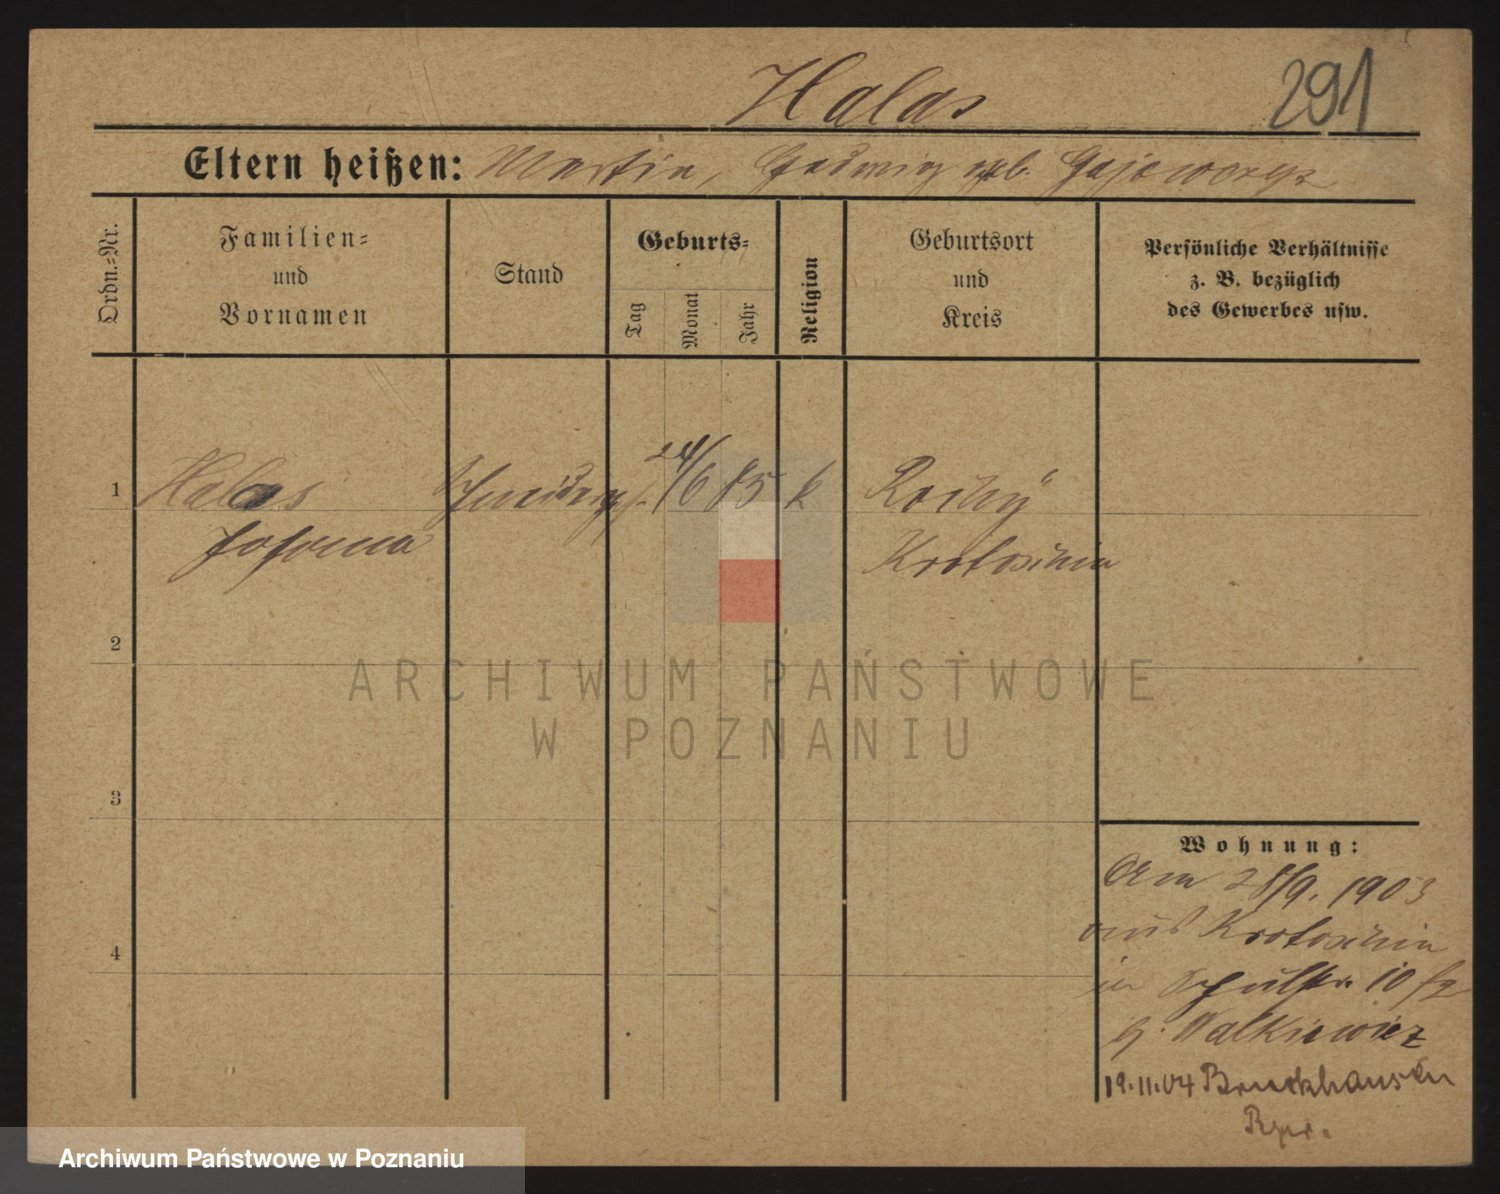 Halas
291
Eltern heißen: Martin, Hedwig geb.
Ordn.-Nr.
Familien-
und
Vornamen
Stand
Geburts-
Tag
Monat
Jahr
Religion
Geburtsort
und
Kreis
Persönliche Verhältnisse
z. B. bezüglich
des Gewerbes usw.
1
Halas
Johanna
24/6 85 k
Krotoschin
2
3
4
Wohnung:
Am 28/9. 1903
aus Krotoschin
in Schulstr. 10
b. Walkiewicz
19.11.04 Bruckhausen
ARCHIWUM PAŃSTWOWE
W POZNANIU
Archiwum Państwowe w Poznaniu